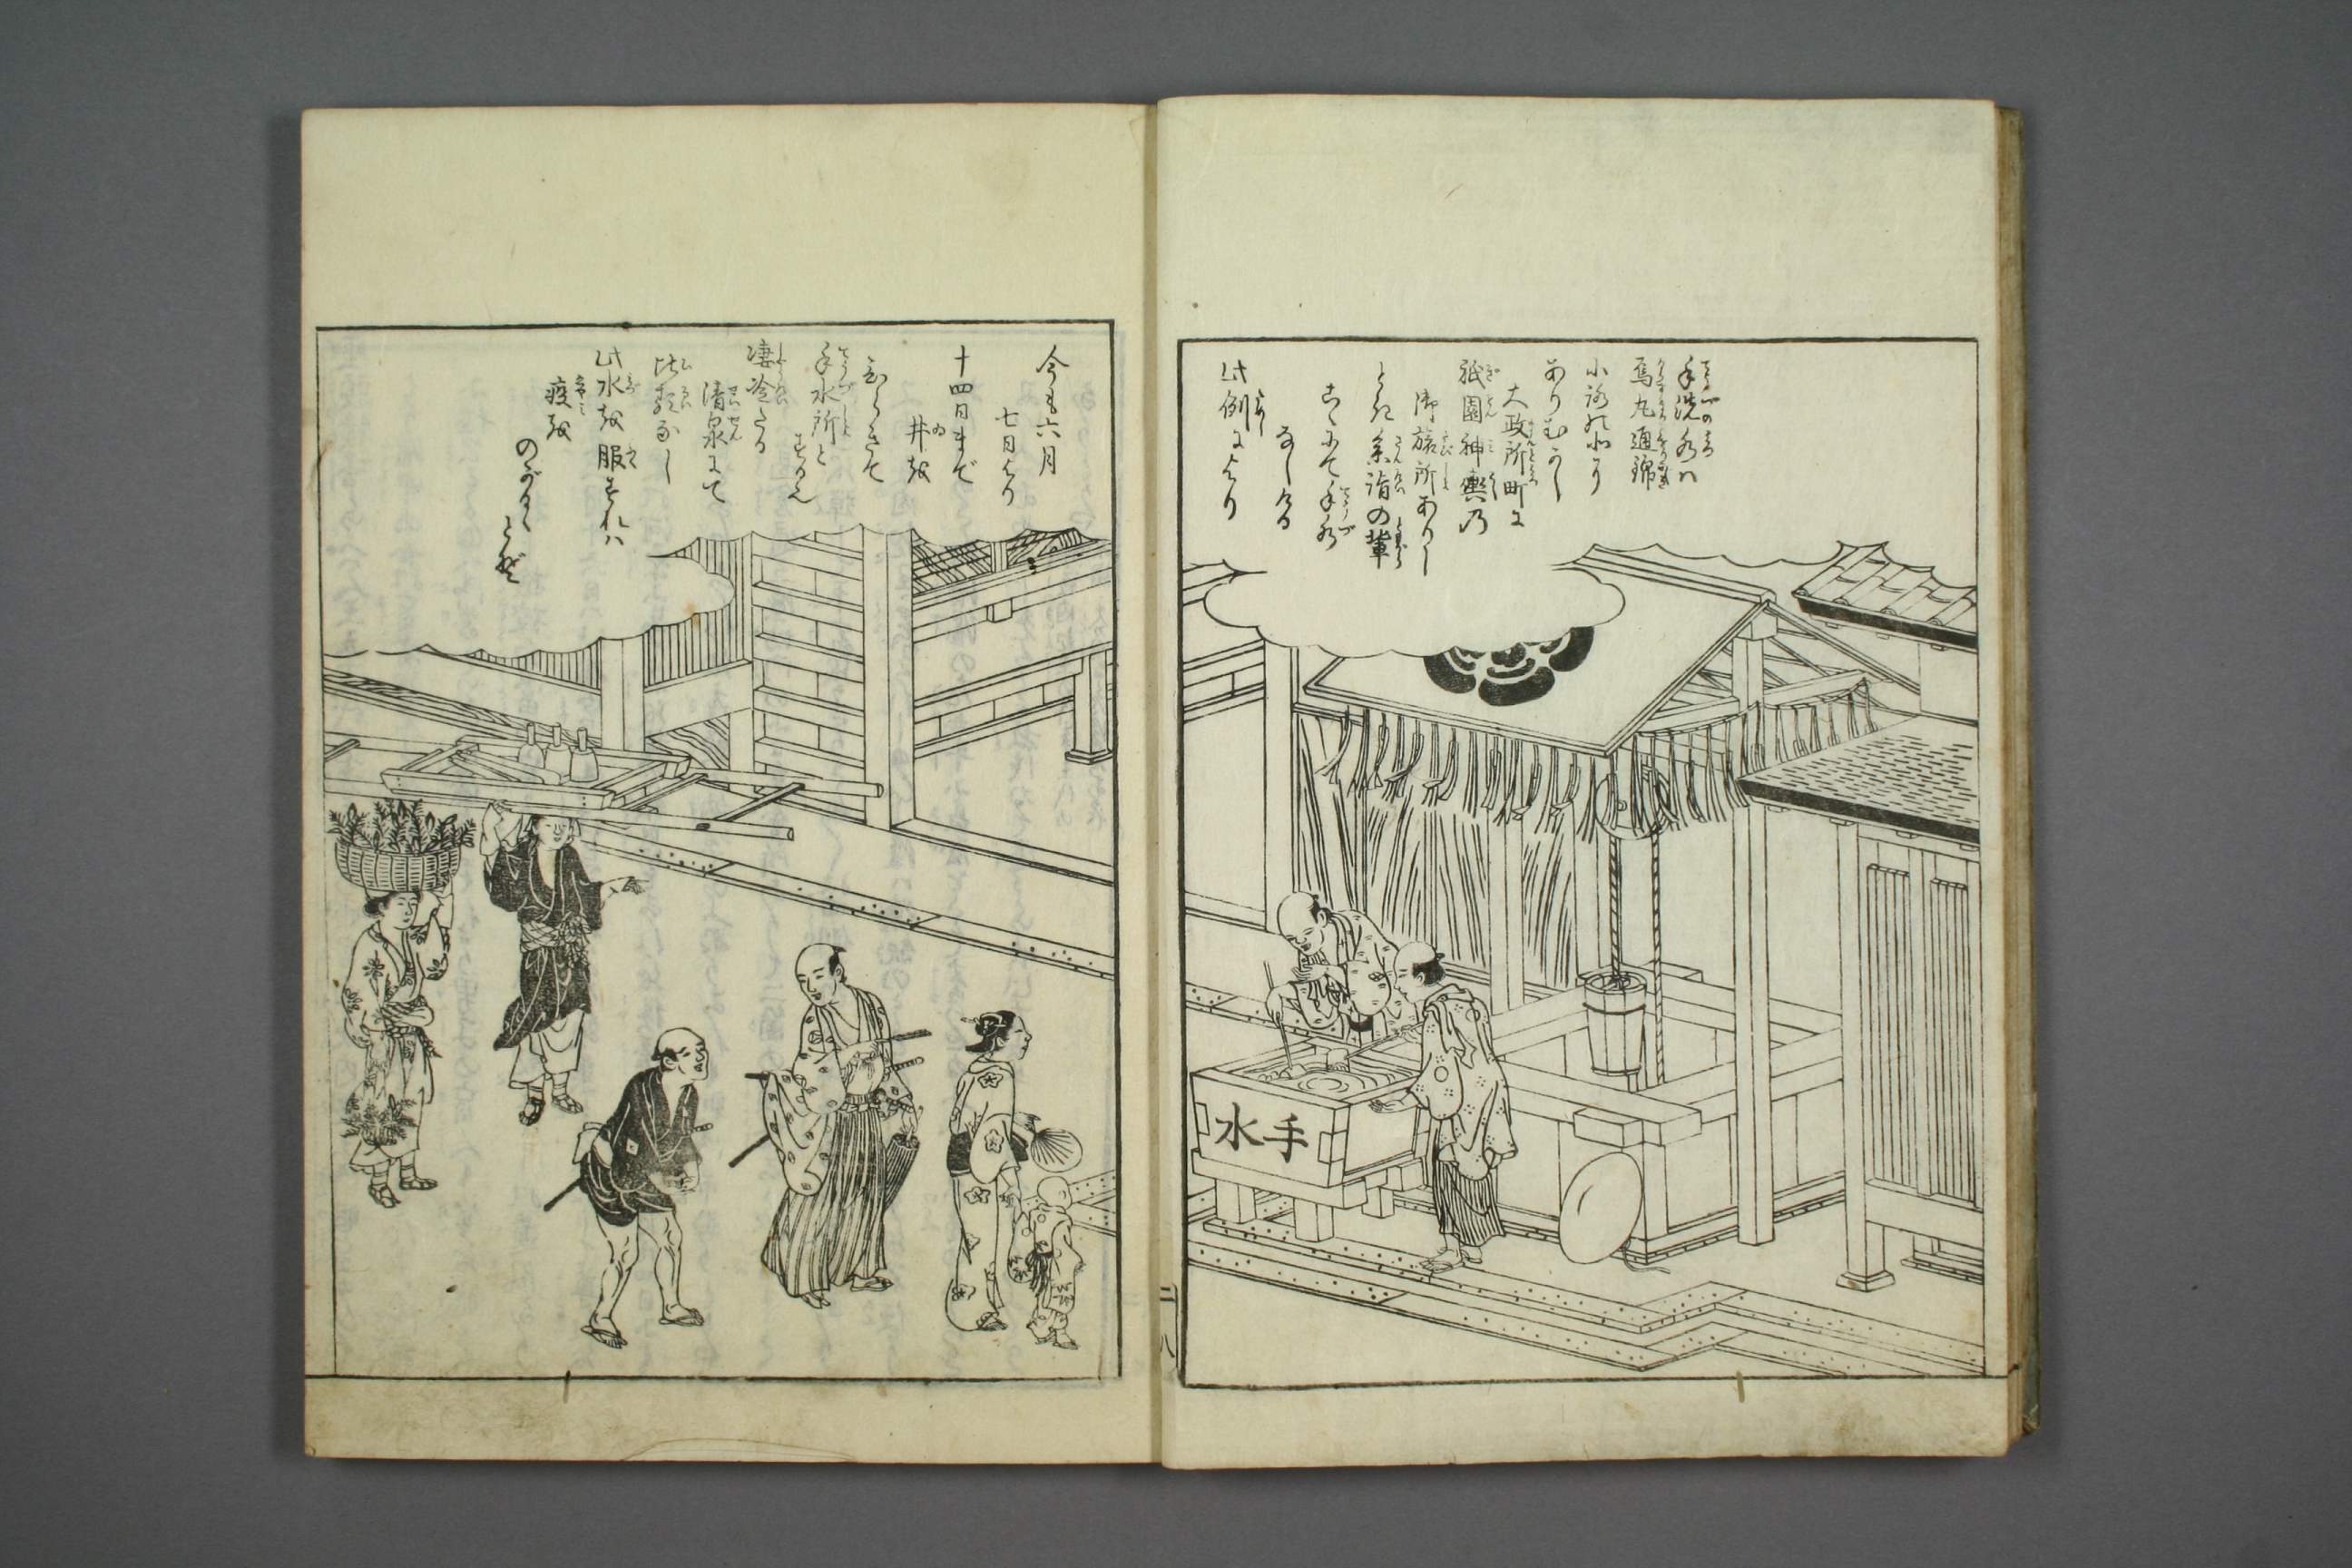 手洗水ハ
烏丸通錦
小路の北に
ありむかし
大政所町に
祇園神輿乃
御旅所ありし
とき参詣の輩
こゝにて手水
なしける
此例により
手水
今も六月
七日より
十四日まで
井を
ひらきて
手水所と
すなん
凄冷たる
清泉にて
比類なし
此水を服すれハ
疫を
のがるゝ
とぞ
二八